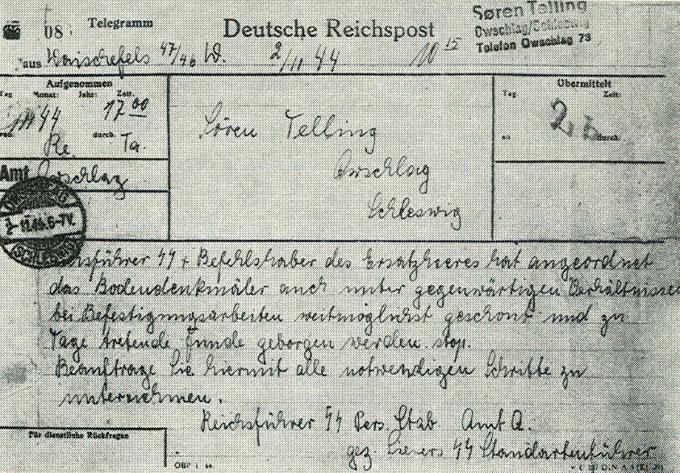 08
Telegramm
Deutsche Reichspost
Søren Telling
Owschlag/Schleswig
Telefon Owschlag 73
aus Waischefels 47/46 W. 2/11 44 10 15
Aufgenommen
Tag Monat: Jahr: Zeit:
44 17 00
von durch
Re. Ta.
Amt Owschlag
Sören Telling
Owschlag
Schleswig
Übermittelt
Tag Zeit:
an durch
(SCHLESWIG)
Reichsführer SS + Befehlshaber des Ersatzheeres hat angeordnet
das Bodendenkmäler auch unter gegenwärtigen Verhältnissen
bei Befestigungsarbeiten weitmöglichst geschont und zu
Tage tretende Funde geborgen werden. stop.
Beauftrage Sie hiermit alle notwendigen Schritte zu
unternehmen.
Reichsführer SS Pers. Stab Amt A.
gez. Sievers SS Standartenführer
Für dienstliche Rückfragen